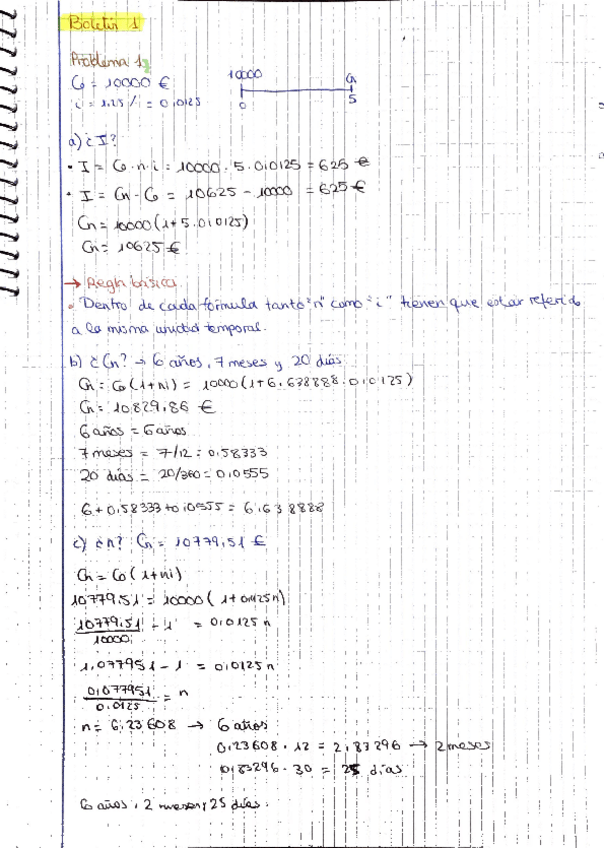 Boletín 1
Problema 1
C0 = 10000 €
i = 1,25% = 0,0125
10000 Cn
0 5
a) ¿I?
• I = C0·n·i = 10000·5·0,0125 = 625 €
• I = Cn - C0 = 10625 - 10000 = 625 €
Cn = 10000(1+5·0,0125)
Cn = 10625 €
→ Regla básica
• Dentro de cada fórmula tanto "n" como "i" tienen que estar referido
a la misma unidad temporal.
b) ¿Cn? → 6 años, 7 meses y 20 días
Cn = C0(1+ni) = 10000(1+6,638888·0,0125)
Cn = 10829,86 €
6 años = 6 años
7 meses = 7/12 = 0,58333
20 días = 20/360 = 0,0555
6 + 0,58333 + 0,0555 = 6,638888
c) ¿n? Cn = 10779,51 €
Cn = C0(1+ni)
10779,51 = 10000(1+0,0125n)
10779,51/10000 - 1 = 0,0125n
1,077951 - 1 = 0,0125n
0,077951/0,0125 = n
n = 6,23608 → 6 años
0,23608·12 = 2,83296 → 2 meses
0,83296·30 = 25 días
6 años, 2 meses y 25 días.